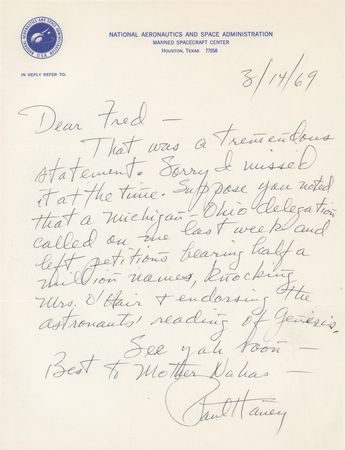 NATIONAL AERONAUTICS AND SPACE ADMINISTRATION
MANNED SPACECRAFT CENTER
HOUSTON, TEXAS 77058
IN REPLY REFER TO:
3/14/69
Dear Fred —
That was a tremendous
statement. Sorry I missed
it at the time. Suppose you noted
that a Michigan-Ohio delegation
called on me last week and
left petitions bearing half a
million names, knocking
Mrs. O'Hair & endorsing the
astronauts' reading of Genesis.
See yah soon —
Best to Mother Dahas —
Paul Haney